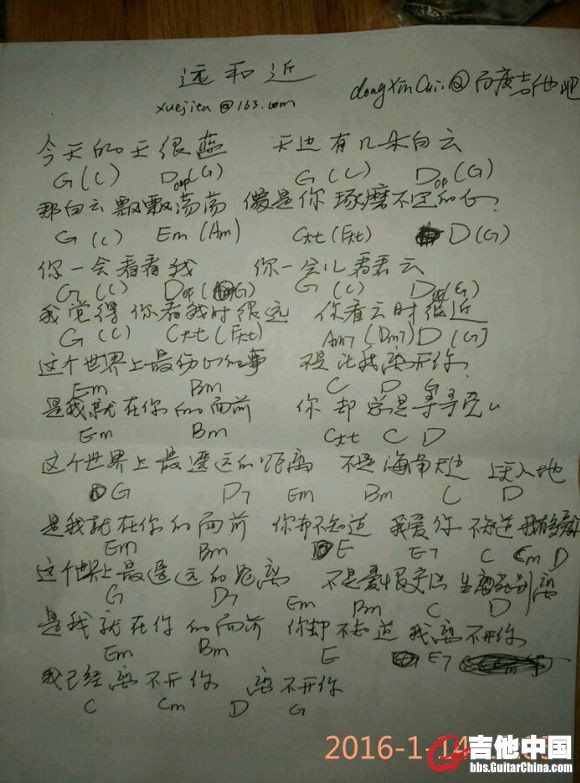 远和近
xuejita@163.com dongxincui@百度吉他吧
今天的天很蓝 天边有几朵白云
G(C) D(G) G(C) D(G)
那白云飘飘荡荡 像是你琢磨不定的心?
G(C) Em(Am) D(G)
你一会看看我 你一会儿看看云
G(C) G(C)
我觉得你看我时很远 你看云时很近
G(C) Am7(Dm7) D(G)
这个世界上最伤心的事 不是让我离开你
Em Bm C D
是我就在你的面前 你却总是寻寻觅
Em Bm C D
这个世界上最遥远的距离 不是海角天边 上天入地
G D7 Em Bm C D
是我就在你的面前 你却不知道 我爱你 不知道
Em Bm E E7 C Cm D
这个世界上最遥远的距离 不是 生离死别
G D7 Em Bm C D
是我就在你的面前 你却不知道 我离不开你
Em Bm E E7
我已经离不开你 离不开你
C Cm D G
2016-1-14
吉他中国
bbs.GuitarChina.com